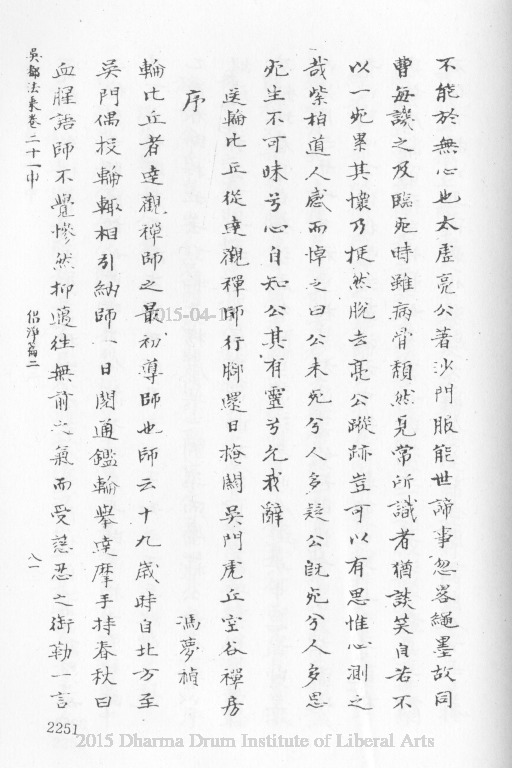 不能於無心也太虛亮公著沙門服能世諦事忽畧繩墨故同
曹每譏之及臨死時雖病骨頹然見常所識者猶談笑自若不
以一死累其懷乃挺然脫去亮公蹤跡豈可以有思惟心測之
哉紫柏道人感而悼之曰公未死兮人多疑公旣死兮人多思
死生不可昧兮心自知公其有靈兮允我辭
送輪比丘從達觀禪師行腳還日掩關吳門虎丘空谷禪房
序
馮夢禎
輪比丘者達觀禪師之最初導師也師云十九歲時自北方至
吳門偶投輪輙相引納師一日閱通鑑輪舉達摩手持春秋曰
血腥語師不覺慘然抑邁往無前之氣而受慈忍之銜勒一言
吳都法乘卷二十一中
侶淨篇二
八一
2251
2015-04-1
2015 Dharma Drum Institute of Liberal Arts